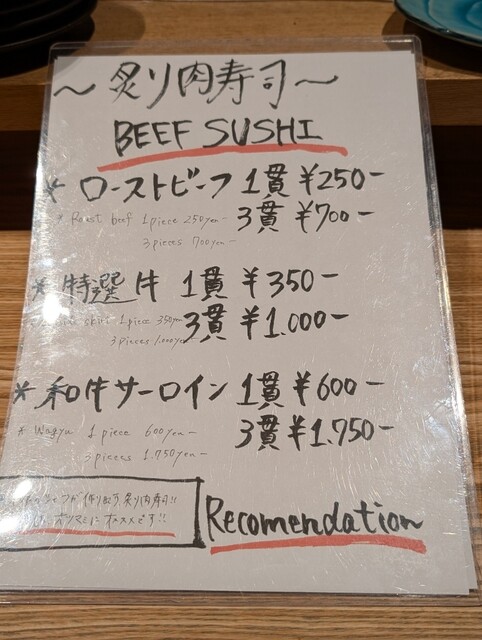 ～炙り肉寿司～
BEEF SUSHI
* ローストビーフ 1貫 ¥250-
* Roast beef 1piece 250yen-
3貫 ¥700-
3pieces 700yen-
* 特選牛 1貫 ¥350-
skirt 1piece 350yen
3貫 ¥1.000-
3pieces 1.000yen-
* 和牛サーロイン 1貫 ¥600-
* Wagyu 1 piece 600yen-
3貫 ¥1.750-
3pieces 1.750yen-
シェフが作り出す、炙り肉寿司!!
オツマミにオススメです!!
Recomendation